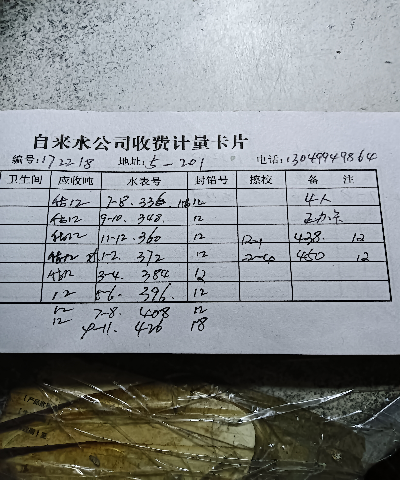 自来水公司收费计量卡片
编号:172218 地址:5-201 电话:13049949864
卫生间 应收吨 水表号 封铅号 擦校 备 注
估12 7-8. 336. 12 4人
估12 9-10. 348. 12
估12 11-12. 360 12 12-1 438. 12
估12 1-2. 372 12 2-4 450 12
估12 3-4. 384 12
12 5-6. 396. 12
12 7-8. 408 12
12 9-11. 426 18